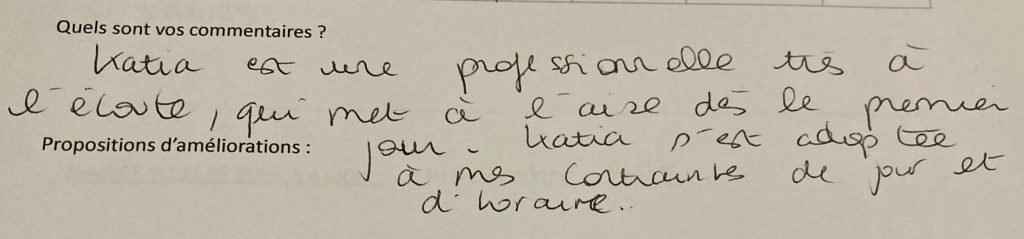 Quels sont vos commentaires ?
Katia est une professionnelle très à
l'écoute, qui met à l'aise dès le premier
Propositions d'améliorations : jour. Katia s'est adaptée
à mes contraintes de jour et
d'horaire..